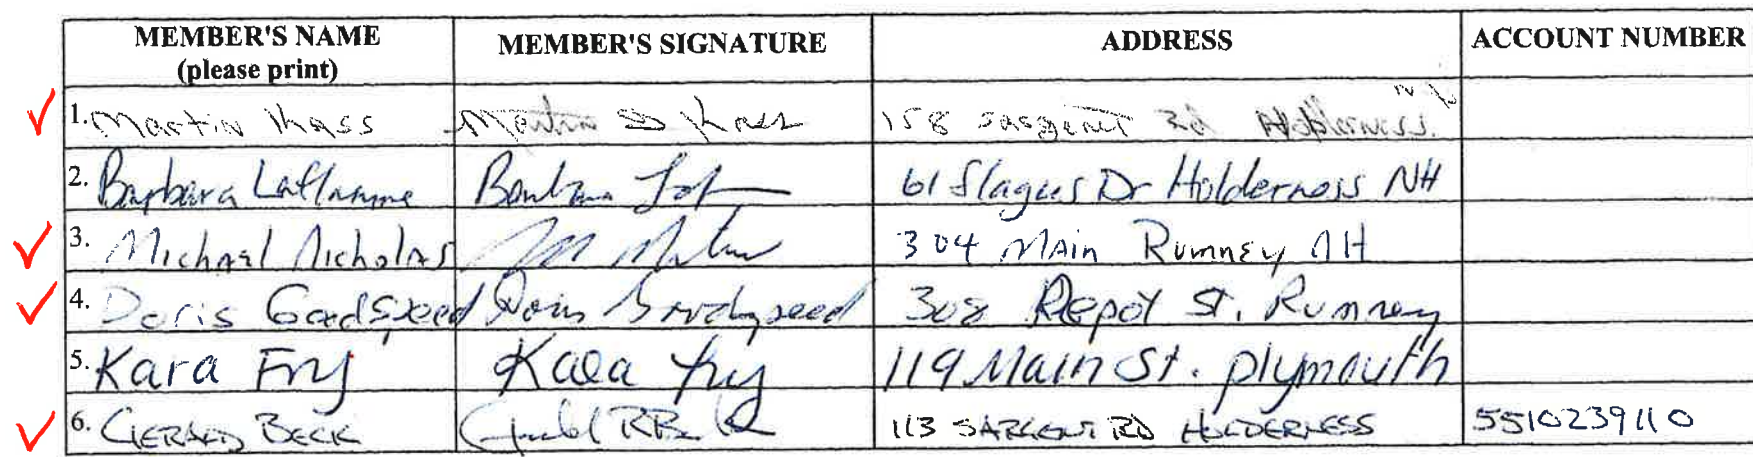 MEMBER'S NAME MEMBER'S SIGNATURE ADDRESS ACCOUNT NUMBER
(please print)
1. Martin Kass Martin D Kass 158 Sargent Rd Holderness NH
2. Barbara Laflamme Barbara 61 Slagus Dr Holderness NH
3. Michael Nicholas 304 Main Rumney NH
4. Doris Goodspeed Doris Goodspeed 308 Depot St. Rumney
5. Kara Fry Kara Fry 119 Main St. plymouth
6. GERALD BECK Gerald R Beck 113 SARGENT RD HOLDERNESS 5510239110